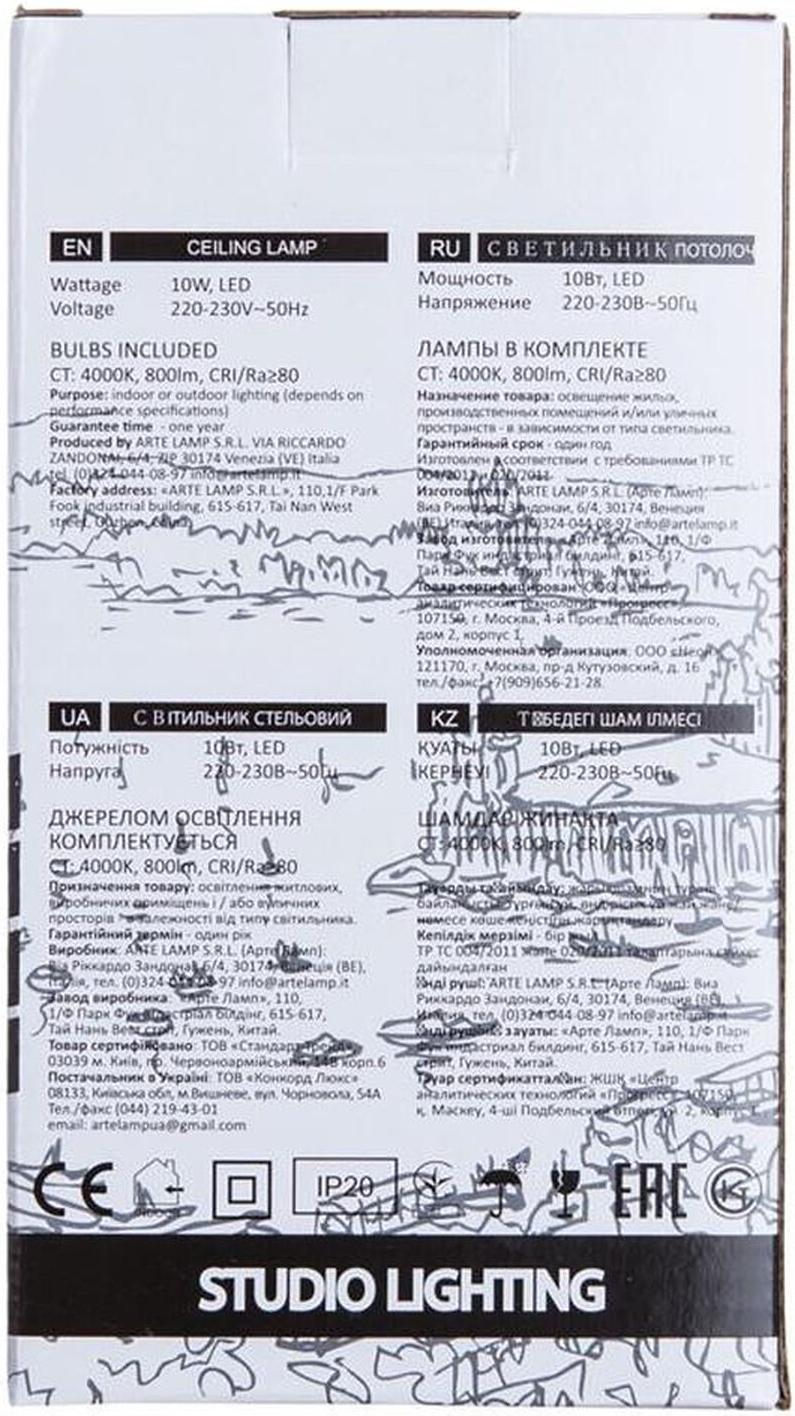 EN CEILING LAMP
Wattage 10W, LED
Voltage 220-230V~50Hz
BULBS INCLUDED
CT: 4000K, 800lm, CRI/Ra≥80
Purpose: indoor or outdoor lighting (depends on
performance specifications)
Guarantee time - one year
Produced by ARTE LAMP S.R.L. VIA RICCARDO
ZANDONAI, 6/4, ZIP 30174 Venezia (VE) Italia
tel. (0)324-044-08-97 info@artelamp.it
Factory address: «ARTE LAMP S.R.L.», 110,1/F Park
Fook industrial building, 615-617, Tai Nan West
street,
RU СВЕТИЛЬНИК ПОТОЛОЧ
Мощность 10Вт, LED
Напряжение 220-230В~50Гц
ЛАМПЫ В КОМПЛЕКТЕ
CT: 4000K, 800lm, CRI/Ra≥80
Назначение товара: освещение жилых,
производственных помещений и/или уличных
пространств - в зависимости от типа светильника.
Гарантийный срок - один год
Изготовлен в соответствии с требованиями ТР ТС
004/2011 и 020/2011
Изготовитель: ARTE LAMP S.R.L. (Арте Ламп):
Виа Риккардо Зандонаи, 6/4, 30174, Венеция
(ВЕ) Италия, тел. (0)324-044-08-97 info@artelamp.it
Завод изготовителя: «Арте Ламп», 110, 1/Ф
Парк Фук индастриал билдинг, 615-617,
Тай Нань Вест стрит, Гужень, Китай.
Товар сертифицирован: ООО «Центр
аналитических технологий «Прогресс»,
107150, г. Москва, 4-й Проезд Подбельского,
дом 2, корпус 1.
Уполномоченная организация: ООО «Неон»
121170, г. Москва, пр-д Кутузовский, д. 16
тел./факс: +7(909)656-21-28.
UA СВІТИЛЬНИК СТЕЛЬОВИЙ
Потужність 10Вт, LED
Напруга 220-230В~50Гц
ДЖЕРЕЛОМ ОСВІТЛЕННЯ
КОМПЛЕКТУЄТЬСЯ
CT: 4000K, 800lm, CRI/Ra≥80
Призначення товару: освітлення житлових,
виробничих приміщень і / або вуличних
просторів - в залежності від типу світильника.
Гарантійний термін - один рік
Виробник: ARTE LAMP S.R.L. (Арте Ламп):
Віа Ріккардо Зандонаі, 6/4, 30174, Венеція (ВЕ),
Італія, тел. (0)324-044-08-97 info@artelamp.it
Завод виробника: «Арте Ламп», 110,
1/Ф Парк Фук індастріал білдінг, 615-617,
Тай Нань Вест стріт, Гужень, Китай.
Товар сертифіковано: ТОВ «Стандарт-Тренд»
03039 м. Київ, пр. Червоноармійський, 14В корп.6
Постачальник в Україні: ТОВ «Конкорд Люкс»
08133, Київська обл, м.Вишневе, вул. Чорновола, 54А
Тел./факс (044) 219-43-01
email: artelampua@gmail.com
KZ БЕДЕГІ ШАМ ІЛМЕСІ
ҚУАТЫ 10Вт, LED
КЕРНЕУІ 220-230В~50Гц
ШАМДАР ЖИНАҚТА
CT: 4000K, 800lm, CRI/Ra≥80
Тауарды тағайындау:
немесе көше кеңістігін жарықтандыру
Кепілдік мерзімі - бір жыл
ТР ТС 004/2011 және 020/2011 талаптарына сәйкес
дайындалған
ARTE LAMP S.R.L. (Арте Ламп): Виа
Риккардо Зандонаи, 6/4, 30174, Венеция (ВЕ),
Италия, тел. (0)324-044-08-97 info@artelamp.it
зауыты: «Арте Ламп», 110, 1/Ф Парк
Фук индастриал билдинг, 615-617, Тай Нань Вест
стрит, Гужень, Китай.
Тауар ЖШҚ «Центр
аналитических технологий «Прогресс», 107150,
қ. Маскеу, 4-ші Подбельский 2, корпус 1.
CE INDOOR IP20 EAC
STUDIO LIGHTING